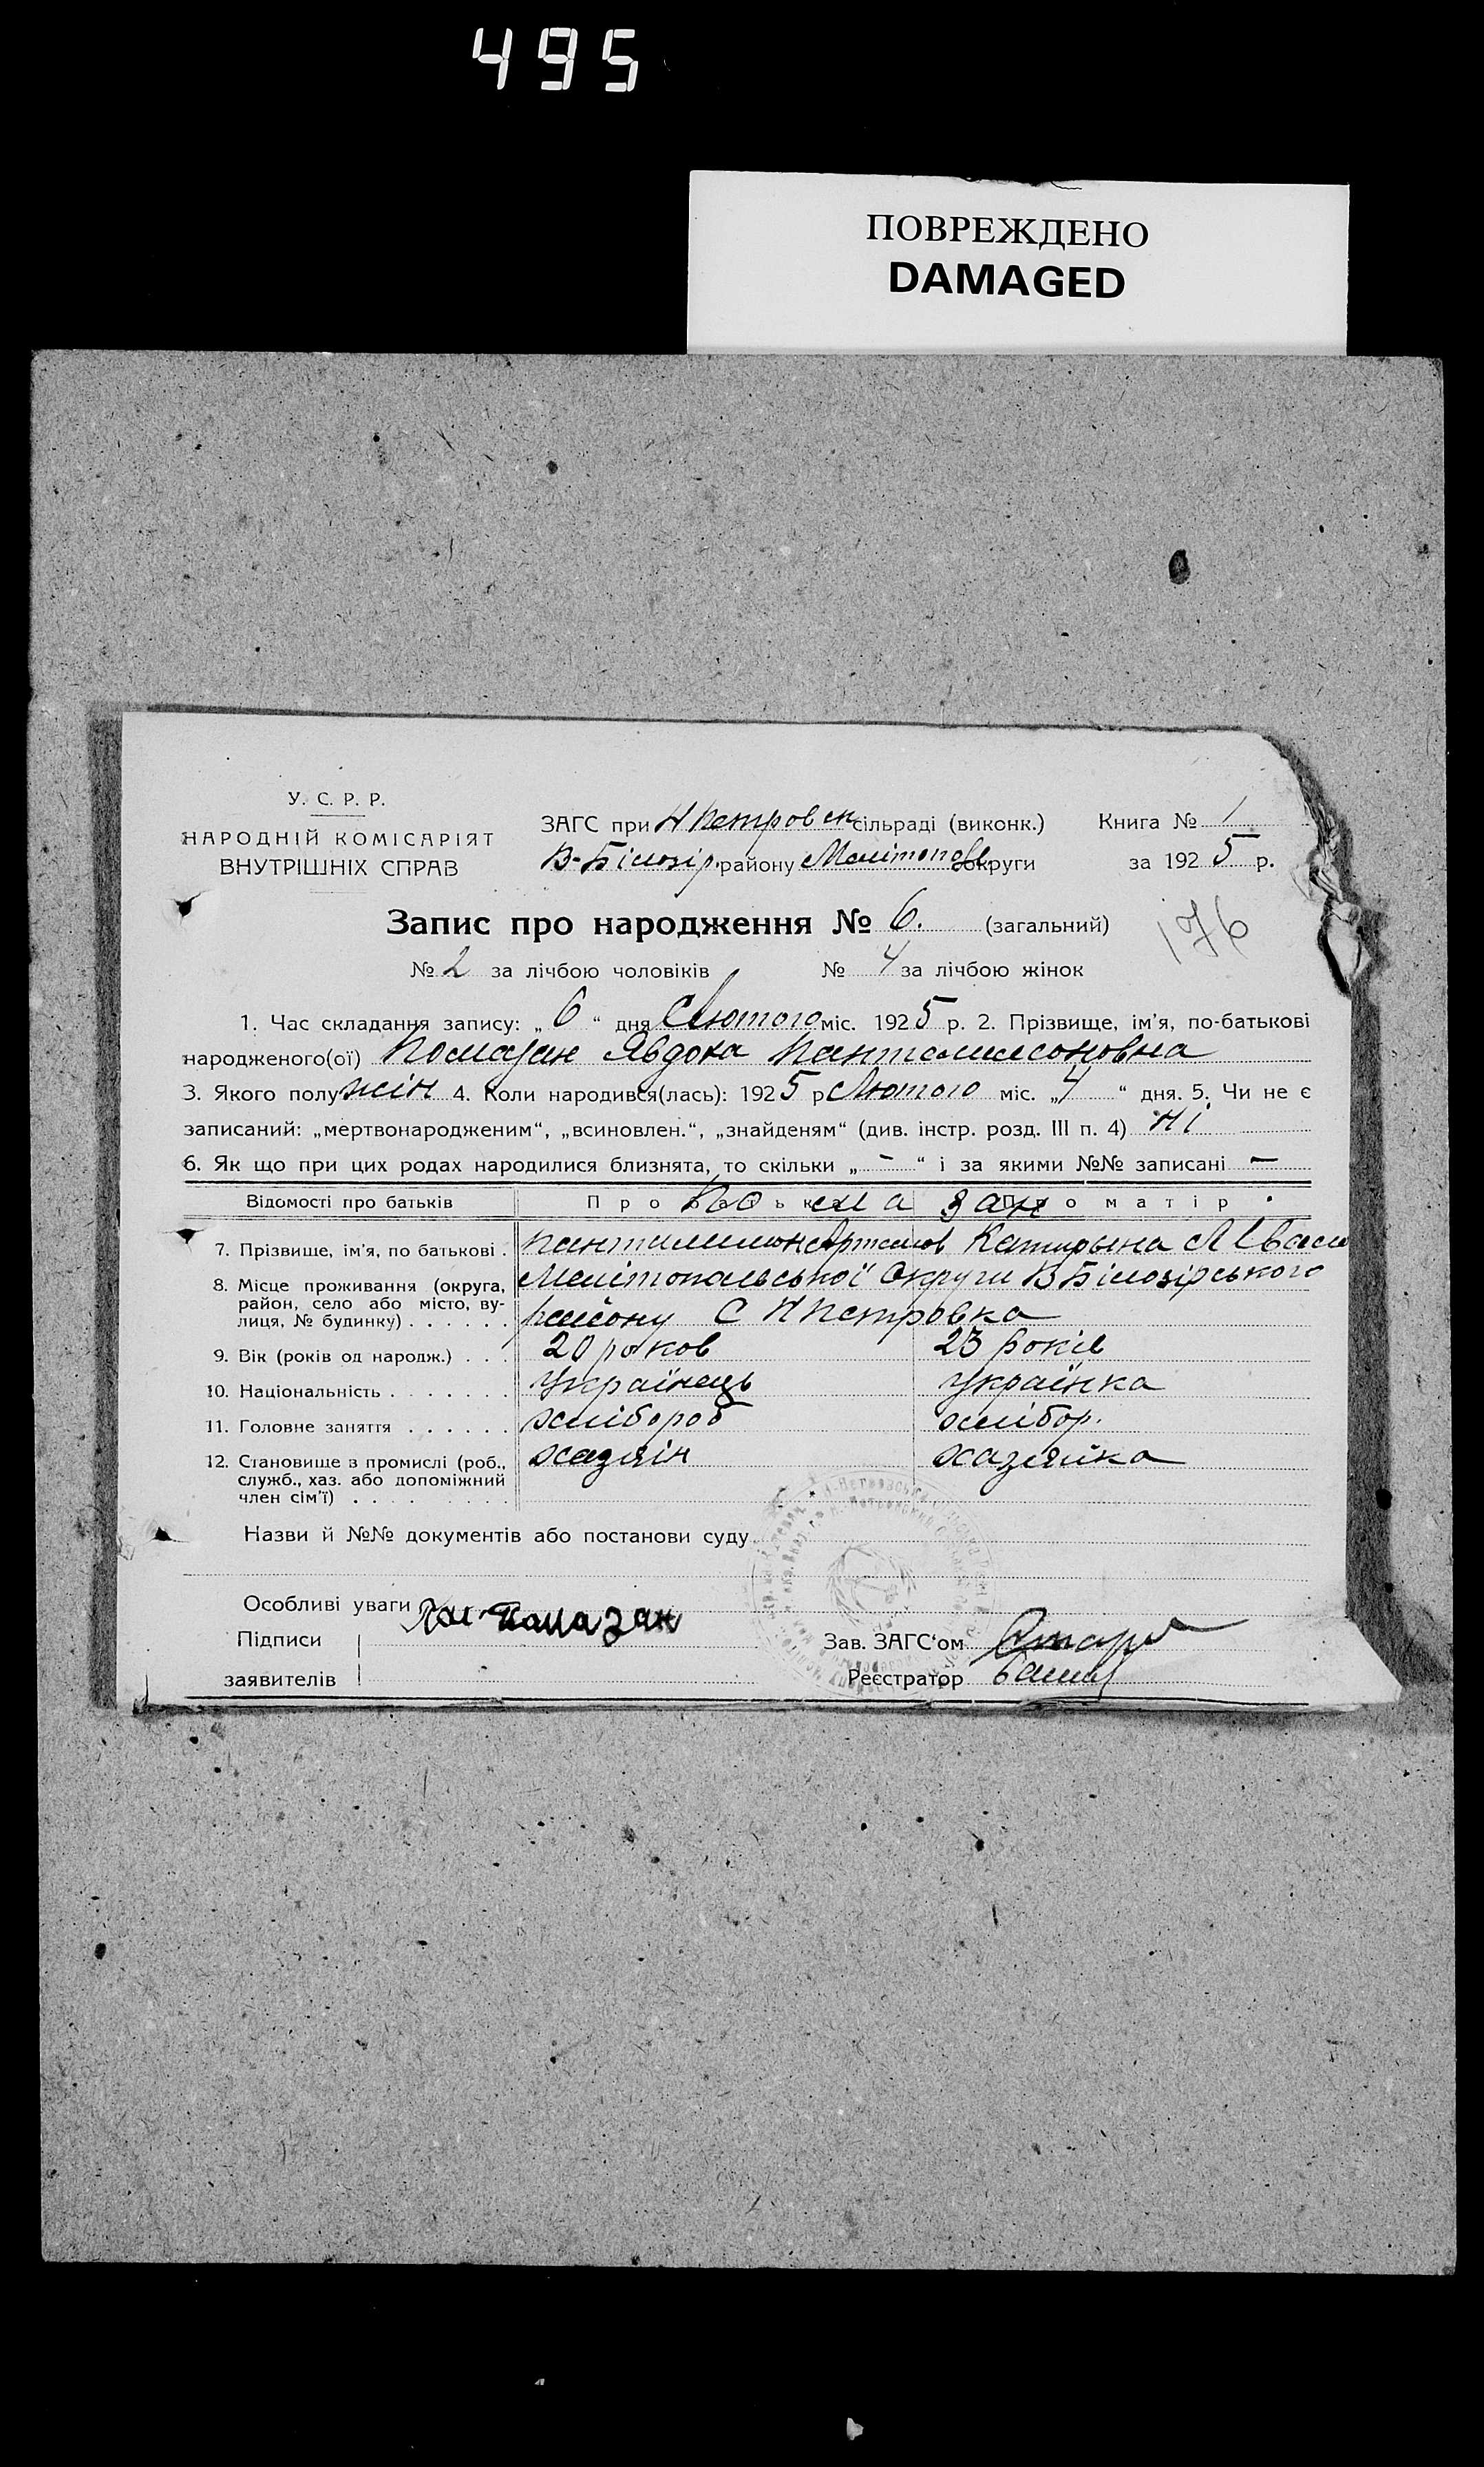 495
ПОВРЕЖДЕНО
DAMAGED
У. С. Р. Р.
НАРОДНІЙ КОМІСАРІЯТ
ВНУТРІШНІХ СПРАВ
ЗАГС при Н Петровск сільраді (виконк.) Книга № 1
В-Білозір. району Мелітопол. округи за 1925 р.
Запис про народження № 6. (загальний)
176
№ 2 за лічбою чоловіків № 4 за лічбою жінок
1. Час складання запису: „ 6 “ дня Лютого міс. 1925 р. 2. Прізвище, ім'я, по-батькові
народженого(ої) Помазан Явдоха Пантелимоновна
3. Якого полу жін 4. Коли народився(лась): 1925 р Лютого міс. „ 4 “ дня. 5. Чи не є
записаний: „мертвонародженим“, „всиновлен.“, „знайденям“ (див. інстр. розд. III п. 4) Ні
6. Як що при цих родах народилися близнята, то скільки „ - “ і за якими №№ записані —
Відомості про батьків Про батька Про матір
Помазан
7. Прізвище, ім'я, по батькові . Пантилимон Артемов Катирына
8. Місце проживання (округа, район, село або місто, вулиця, № будинку) . . . . . . Мелітопольської Округи В Білозірського
району С НПетровка
9. Вік (років од народж.) . . . 20 роков 23 років
10. Національність . . . . . . . Українець Українка
11. Головне заняття . . . . . . хлібороб хлібор.
12. Становище з промислі (роб., служб., хаз. або допоміжний член сім'ї) . . . . . . . . . хазяін хазяйка
Назви й №№ документів або постанови суду
Особливі уваги
Підписи Помазан
заявителів
Зав. ЗАГС'ом
Реєстратор